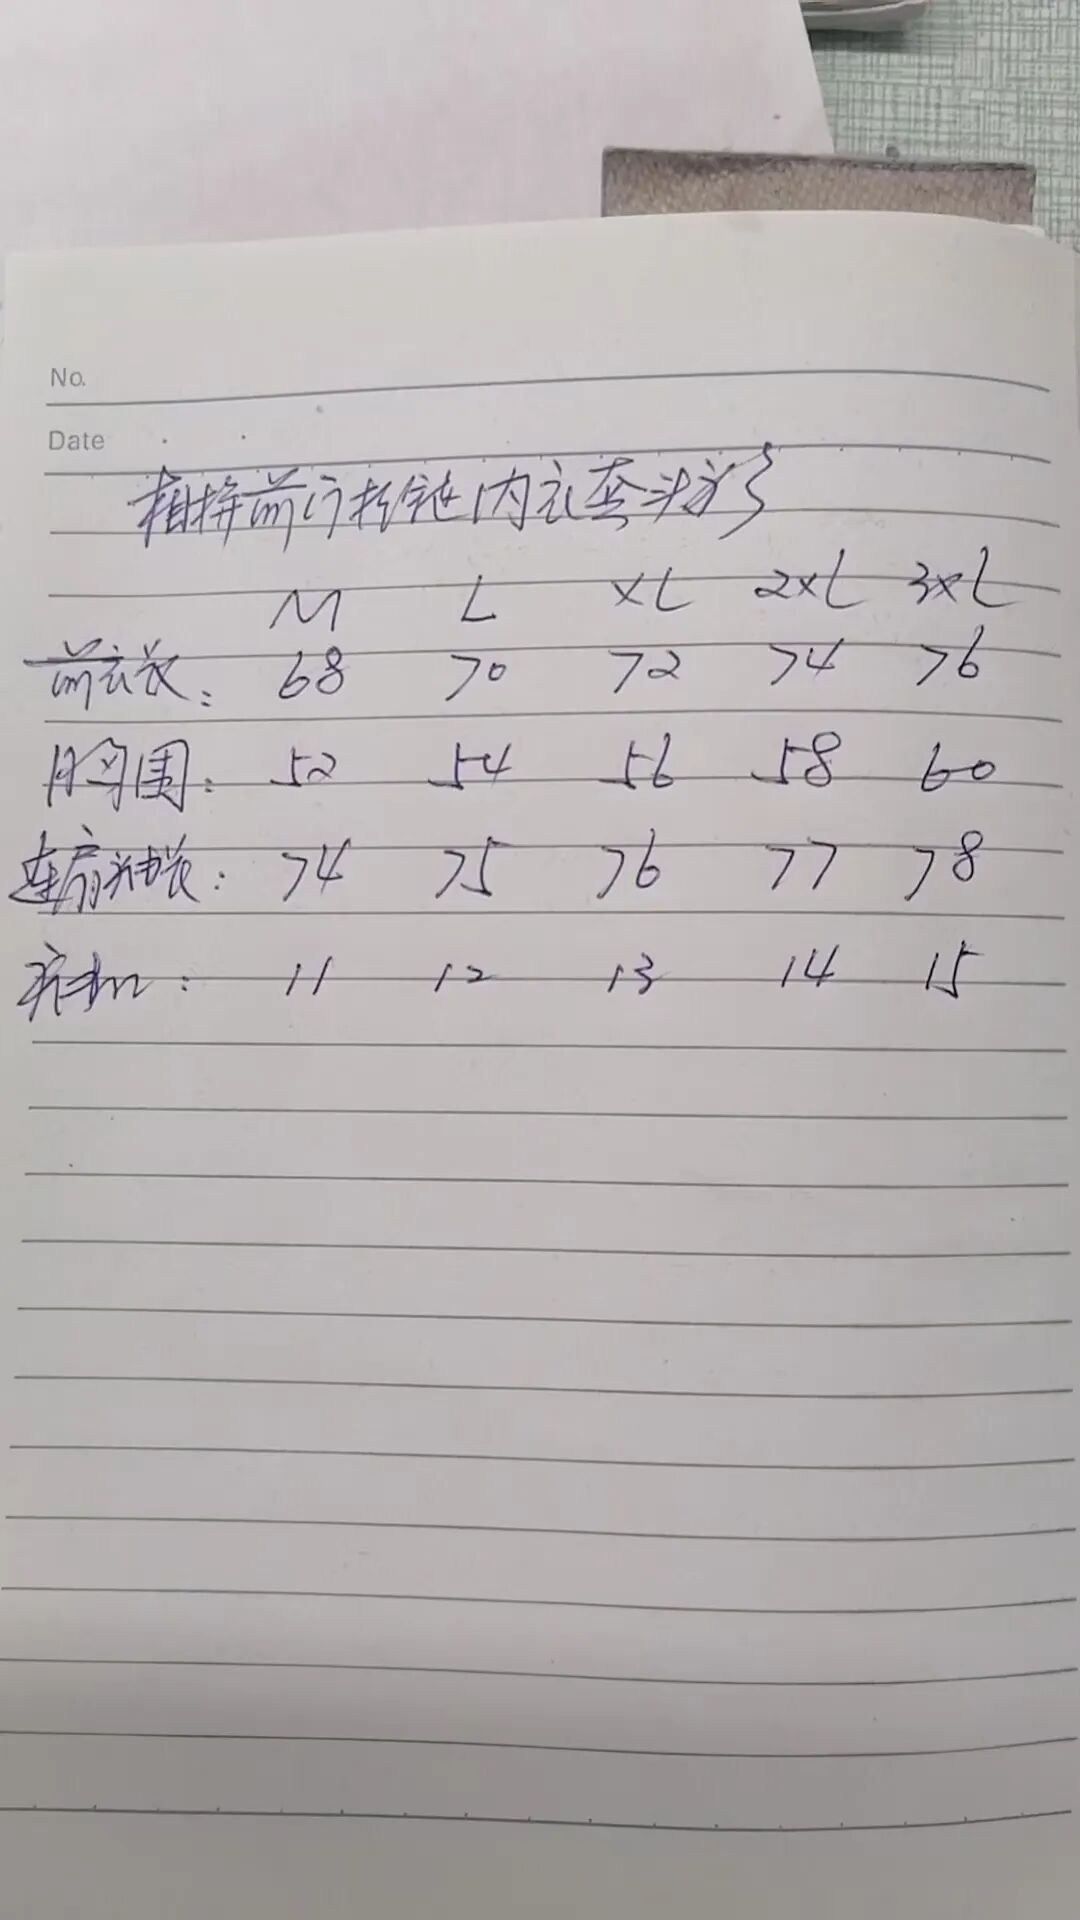 No.
Date
相拼前门拉链内衣套头衫
M L XL 2XL 3XL
前衣长: 68 70 72 74 76
胸围: 52 54 56 58 60
连肩袖长: 74 75 76 77 78
: 11 12 13 14 15